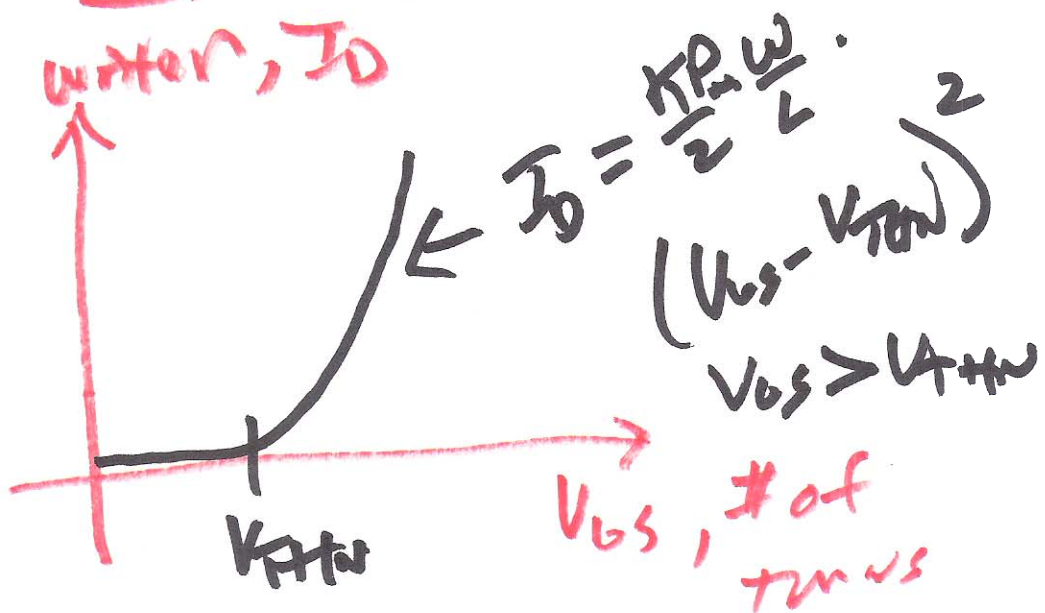 water, ID
ID = KPn/2 W/L ·
(VGS - VTHN)²
VGS > VTHN
VTHN
VGS, # of
turns